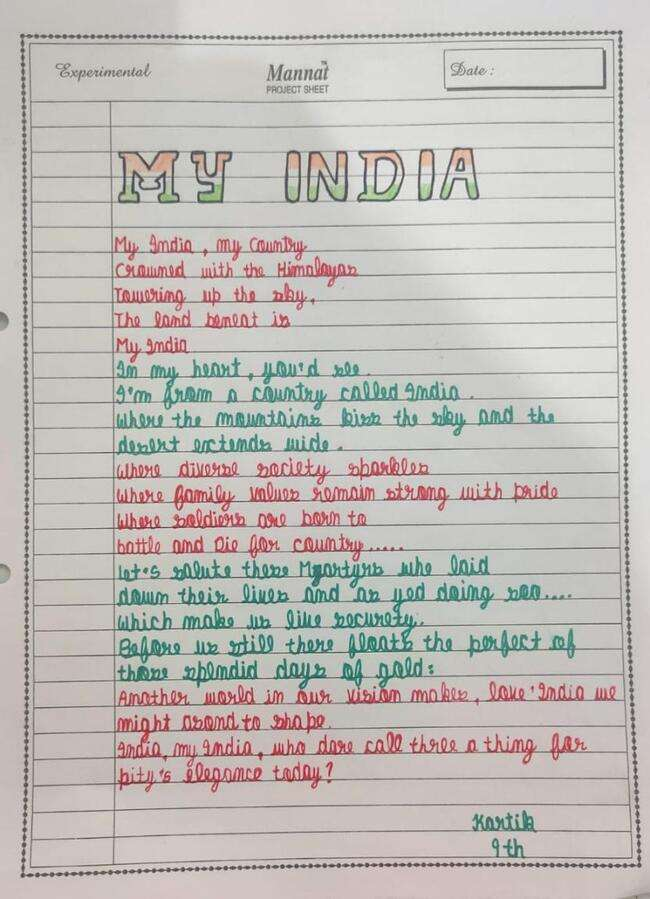 Experimental
Mannat
PROJECT SHEET
Date :
MY INDIA
My India , my Country
Crowned with the Himalayas
Towering up the sky,
The land beneat is
My India
In my heart, you'd see.
I'm from a country called India.
Where the mountains kiss the sky and the
desert extends wide.
Where diverse society sparkles
Where family values remain strong with pride
Where soldiers are born to
battle and Die for country.....
Let's salute these Myartyrs who laid
down their lives and as yed doing soo....
Which make us live securety.
Before us still there floats the perfect of
those splendid days of gold:
Another world in our vision makes, love 'India we
might asond to shape.
India, my India, who dare call three a thing for
pity's elegance today?
Kartik
9th